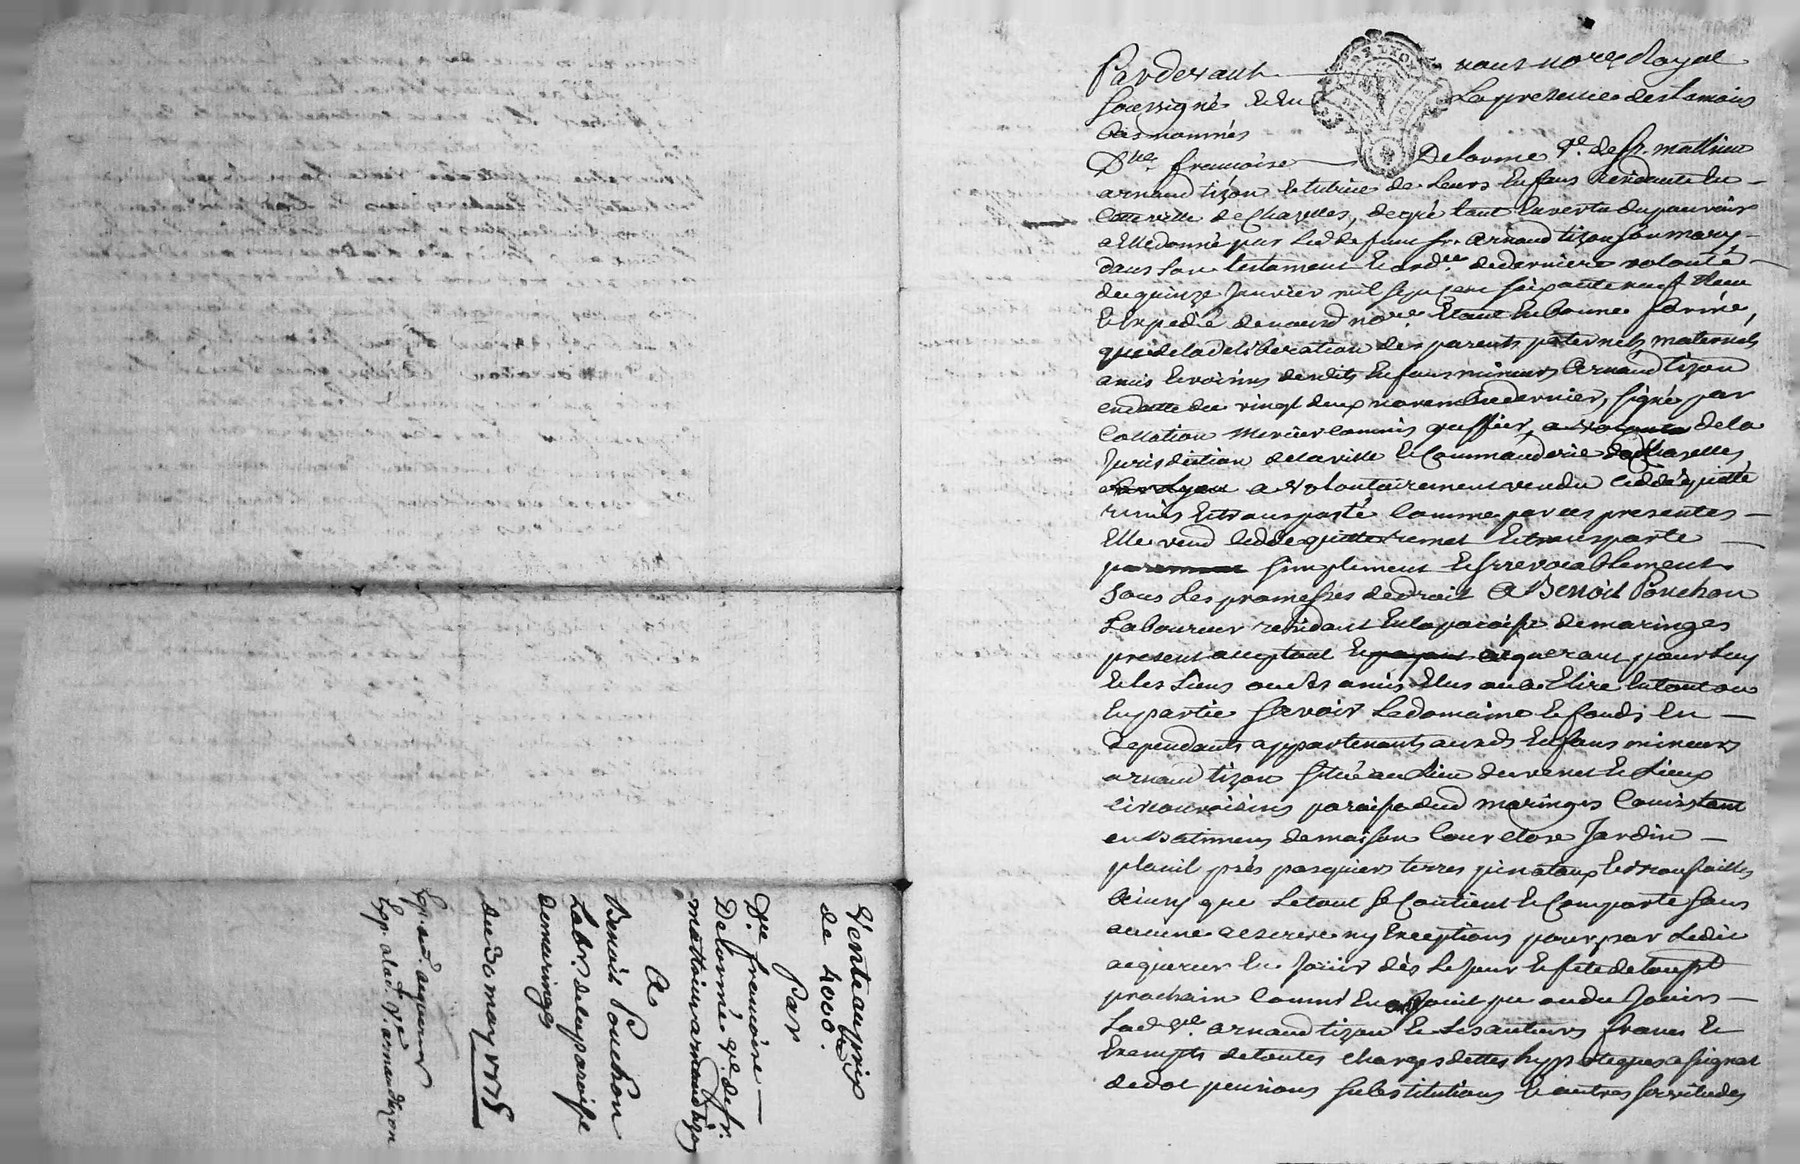 Pardevant nous no.re Royal
soussigné et en la presence des temoins
bas nommés
D.lle francoise Delorme v.e de s.r mathieu
arnaud tizon et tutrice de leurs Enfans residante en
cette ville de Chazelles, de gré tant en vertu du pouvoir
a Elle donné par led. defunt s.r arnaud tizon son mary
dans son testament et ord.ce de derniere volonté
du quinze Janvier mil sept cent soixante neuf Reçu
et Expedié de nousd. no.re Etant en bonne forme,
que de la deliberation des parents paternels maternels
amis et voisins desdits Enfans mineurs Arnaud tizon
en datte du vingt deux novembre dernier, signé par
Collation mercier commis greffier, de la
Jurisdiction de la ville et Commanderie de Chazelles
a volontairement vendu ceddé quitté
remis et transporté comme par ces presentes
Elle vend cedde quitte remet et transporte
simplement et irrevocablement
sous les promesses de droit a Benoit Ponchon
Laboureur residant en la paroisse de maringes
present acceptant et acquerant pour luy
et les siens ou des amis Elus ou a Elire en tout ou
en partie savoir Le domaine et fonds en
dependants appartenants auxd. Enfans mineurs
arnaud tizon situé au lieu du venet et Lieux
circonvoisins paroisse dud. maringes Consistant
en batimens de maison Cour close Jardin
plait prés pasquiers terres pinataux et broussailles
ainsy que le tout se Contient et Comporte sans
aucune reserve ny Exceptions pour par Ledit
acquereur en Jouir dès le Jour et fete de toussts
prochain comme en ont Jouit pu ou du Jouir
Lad. v.e arnaud tizon et ses auteurs francs et
Exempts de toutes charges dettes hypoteques assignat
de dot pensions substitutions et autres servitudes
Vente au prix
de 4000.tt
Par
D.lle francoise
Delorme v.e de s.r
mathieu arnaud tizon
A
Benoit Ponchon
Lab.r de la paroisse
de maringes
du 30 may 1775
Exp. acquereur
Exp. a lad. v.e arnaud tizon